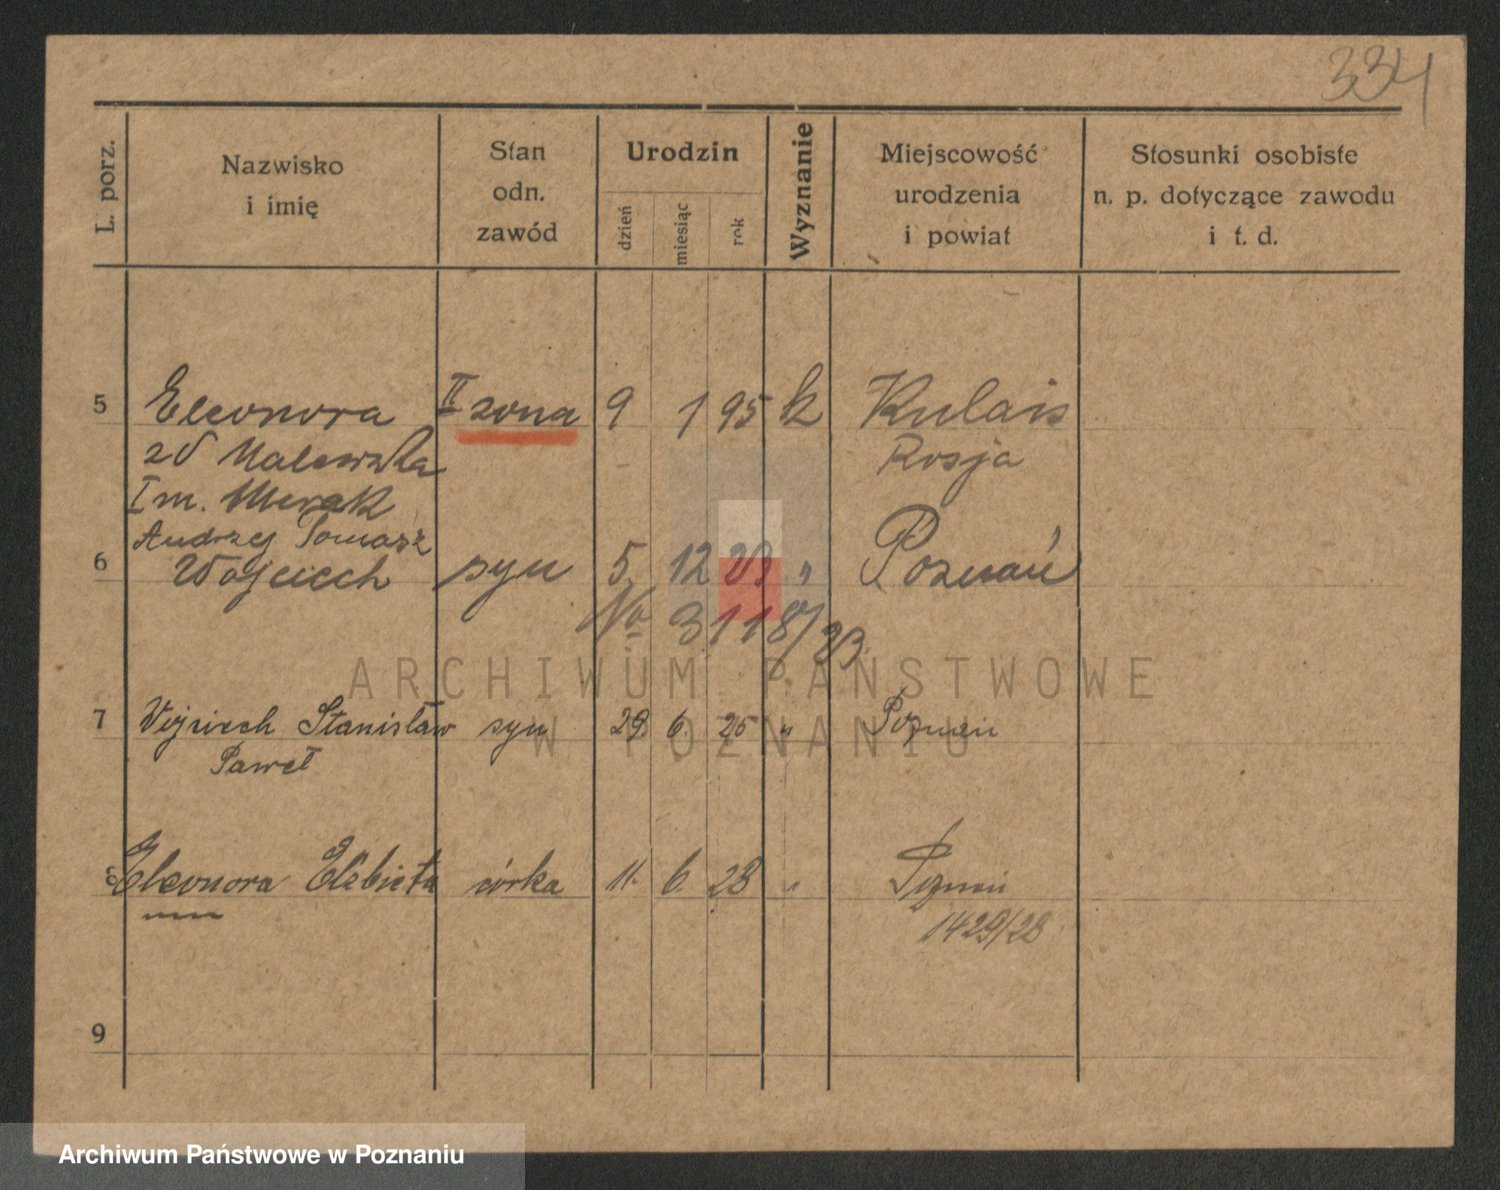 334
L. porz.
Nazwisko
i imię
Stan
odn.
zawód
Urodzin
dzień
miesiąc
rok
Wyznanie
Miejscowość
urodzenia
i powiat
Stosunki osobiste
n. p. dotyczące zawodu
i t. d.
5 Eleonora II zona 9 1 95 k Kulais
zd Malewska Rosja
I m. Murak
Andrzej Tomasz
6 Wojciech syn 5 12 23 " Poznań
No 3118/23
ARCHIWUM PAŃSTWOWE
W POZNANIU
7 Wojciech Stanisław syn 29 6. 25 " Poznań
Paweł
8 Eleonora Elżbieta córka 11. 6. 28 " Poznań
1429/28
9
Archiwum Państwowe w Poznaniu